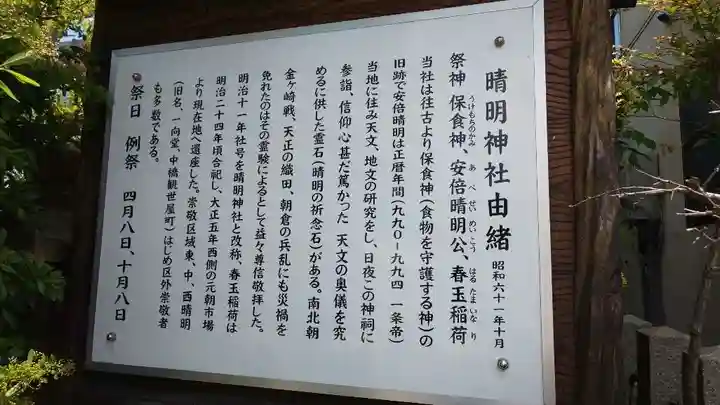 晴明神社由緒 昭和六十一年十月
祭神 保食神、安倍晴明公、春玉稲荷
うけもちのかみ あべせいめいこう はるたまいなり
当社は往古より保食神(食物を守護する神)の
旧跡で安倍晴明は正暦年間(九九0-九九四 一条帝)
当地に住み天文、地文の研究をし、日夜この神祠に
参詣、信仰心甚だ篤かった 天文の奥儀を究
めるに供した霊石(晴明の祈念石)がある。南北朝
金ヶ崎戦、天正の織田、朝倉の兵乱にも災禍を
免れたのはその霊験によるとして益々尊信敬拝した。
明治十一年社号を晴明神社と改称、春玉稲荷は
明治二十四年頃合祀し、大正五年西側の元朝市場
より現在地へ遷座した。崇敬区域東、中、西晴明
(旧名、一向堂、中橋観世屋町)はじめ区外崇敬者
も多数である。
祭日 例祭 四月八日、十月八日